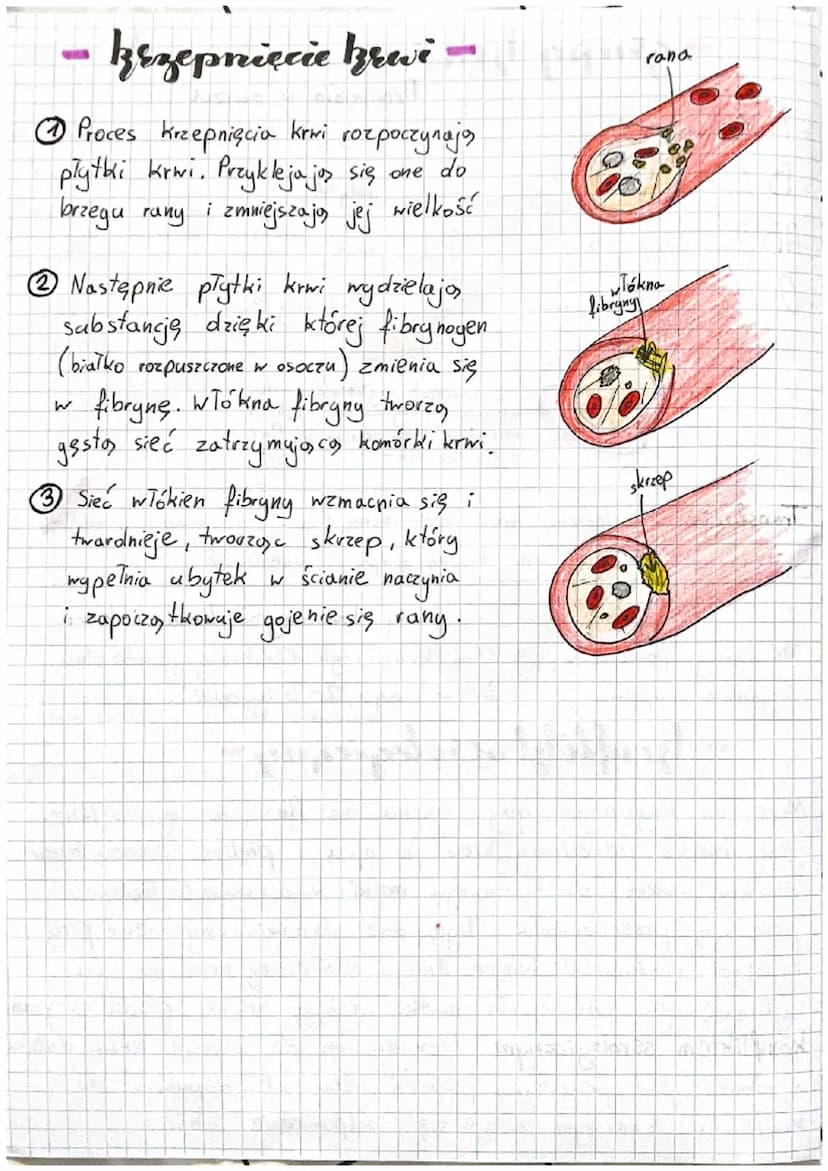 - krzepnięcie krwi -
rana
① Proces krzepnięcia krwi rozpoczynają
płytki krwi. Przyklejają się one do
brzegu rany i zmniejszają jej wielkość
② Następnie płytki krwi wydzielają
substancję dzięki której fibrynogen
(białko rozpuszczone w osoczu) zmienia się
w fibrynę. Włókna fibryny tworzą
gęstą sieć zatrzymującą komórki krwi.
włókna
fibryny
③ Sieć włókien fibryny wzmacnia się i
twardnieje, tworząc skrzep, który
wypełnia ubytek w ścianie naczynia
i zapoczątkowuje gojenie się rany.
skrzep